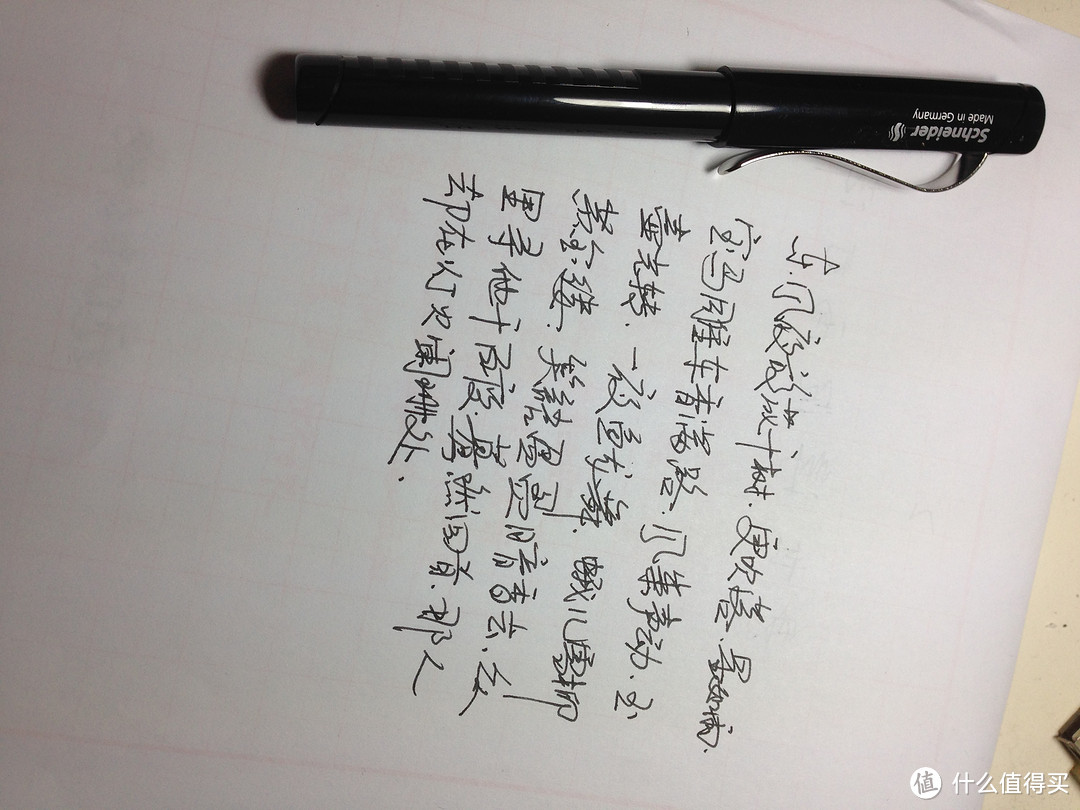 Schneider
Made in Germany
东风夜放花千树.更吹落.星如雨.
宝马雕车香满路.凤箫声动.玉
壶光转.一夜鱼龙舞.蛾儿雪柳
黄金缕.笑语盈盈暗香去.众
里寻他千百度.蓦然回首.那人
却在灯火阑珊处.
值 什么值得买